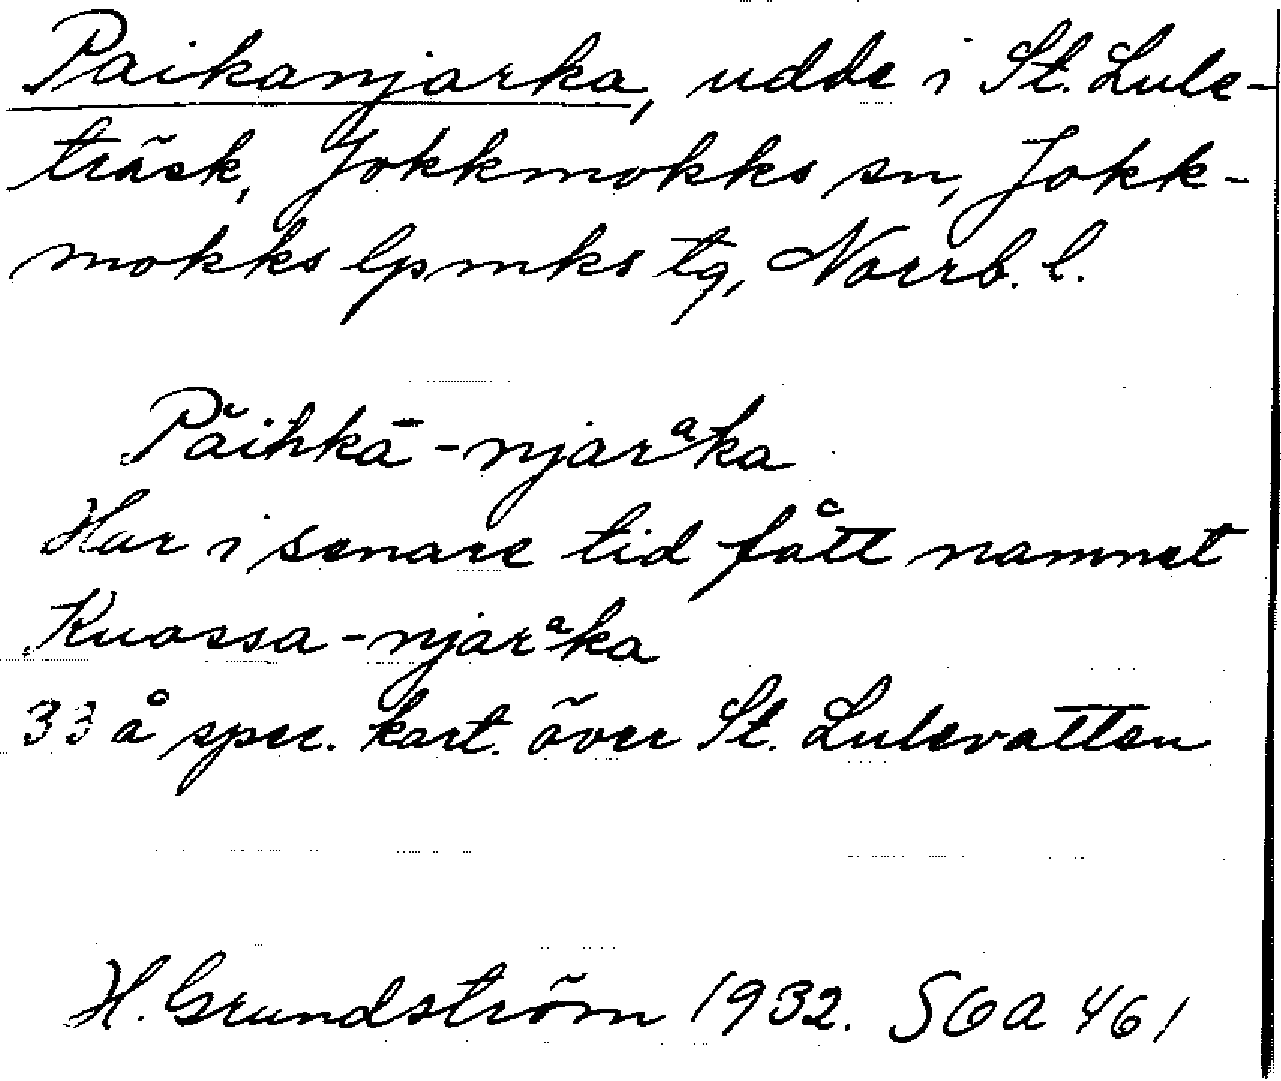 Paikanjarka, udde i St. Lule-
träsk, Jokkmokks sn, Jokk-
mokks lpmks tg, Norrb. l.
Păihkā-njarᵃka
Har i senare tid fått namnet
Kuossa-njarᵃka
33 å spec. kart. över St. Lulevatten
H. Grundström 1932. SOA 461